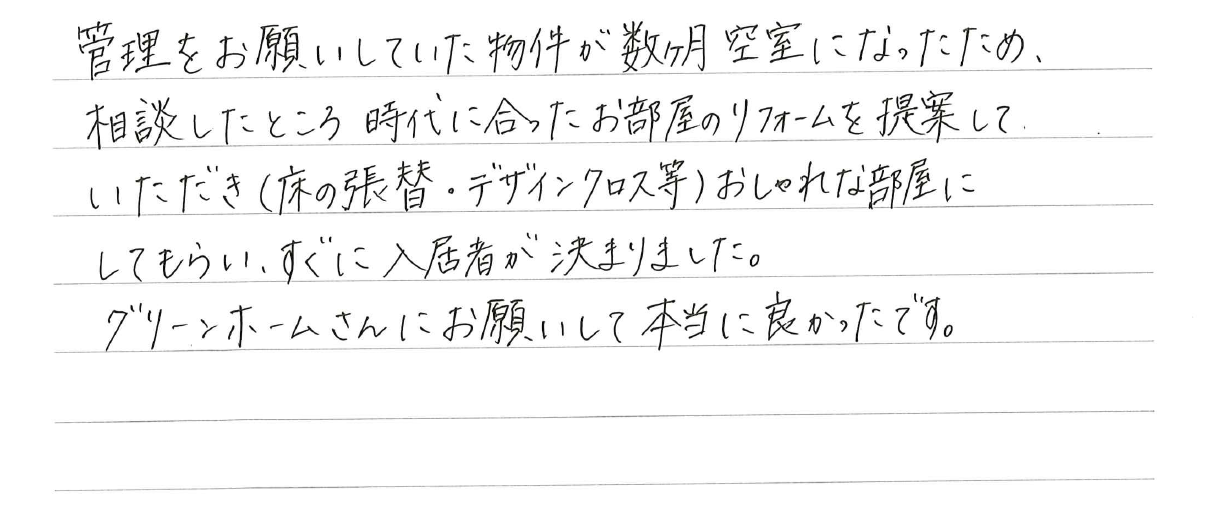 管理をお願いしていた物件が数ヶ月空室になったため、
相談したところ時代に合ったお部屋のリフォームを提案して
いただき(床の張替・デザインクロス等)おしゃれな部屋に
してもらい、すぐに入居者が決まりました。
グリーンホームさんにお願いして本当に良かったです。